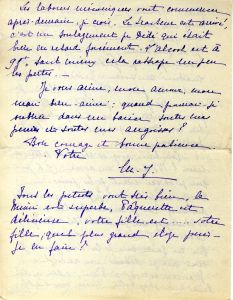 Les labours mécaniques vont commencer
après-demain, je crois. Le tracteur est arrivé,
c'est un soulagement je Dédé qui était
bien en retard forcément. L'alcool est à
95°, tant mieux cela rattrape un peu
les pertes. —
Je vous aime, mon amour, mon
mari bien-aimé : quand pourrai-je
oublier dans un baiser toutes mes
peines et toutes mes angoisses ?
Bon courage et bonne patience
Votre
M.-J.
Tous les petits vont très bien, le
Mimi est superbe, Pâquerette est
délicieuse, votre fille est .... votre
fille, quel plus grand éloge puis-
je en faire ?